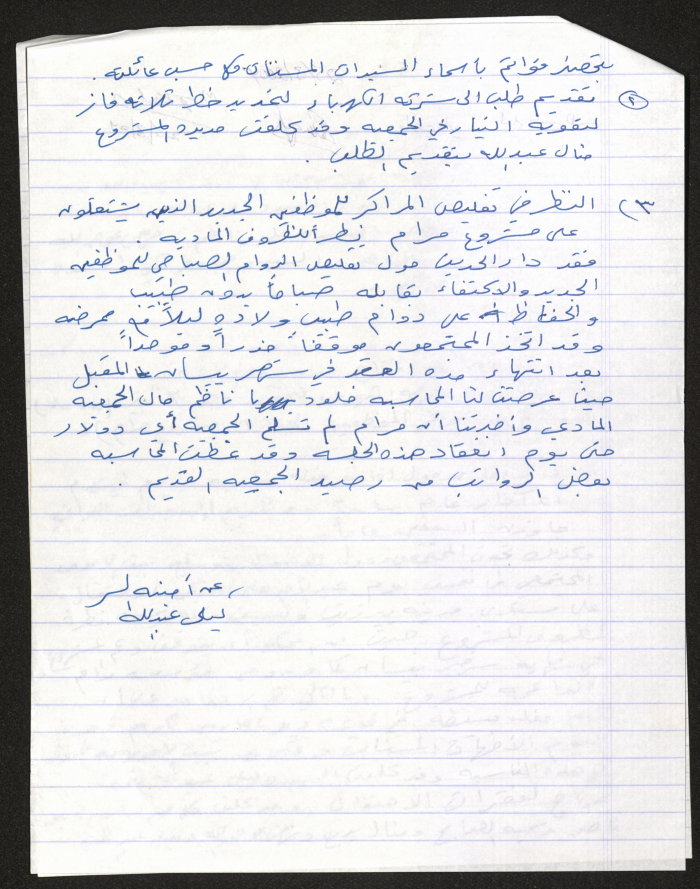 بتحضير قوائم بأسماء السيدات المسنات كلا حسب عائلته .
٢) تقديم طلب الى شركة الكهرباء لتمديد خط ثلاثة فاز
لتقوية التيار في الجمعيه وقد كلفت مديرة المشروع
منال عبدالله بتقديم الطلب .
٣) النظر في تقليص المراكز للموظفين الجدد الذين يشتغلون
على مشروع مرام نظراً للظروف الماديه .
فقد دار الحديث حول تقليص الدوام الصباحي للموظفين
الجدد والاكتفاء بقابله صباحاً بدون طبيب
والحفاظ على دوام طبيب ولاده ليلاً مع ممرضه
وقد اتخذ المجتمعون موقفاً حذراً وموحداً
بعد انتهاء هذه العقد في شهر نيسان المقبل
حيث عرضت لنا المحاسبه خلود ناظم حال الجمعيه
المادي وأخبرتنا أن مرام لم تسلم الجمعيه أي دولار
حتى يوم انعقاد هذه الجلسه وقد غطت المحاسبه
بعض الرواتب من رصيد الجمعيه القديم .
عن أمينه لسر
ليلى عبدالله